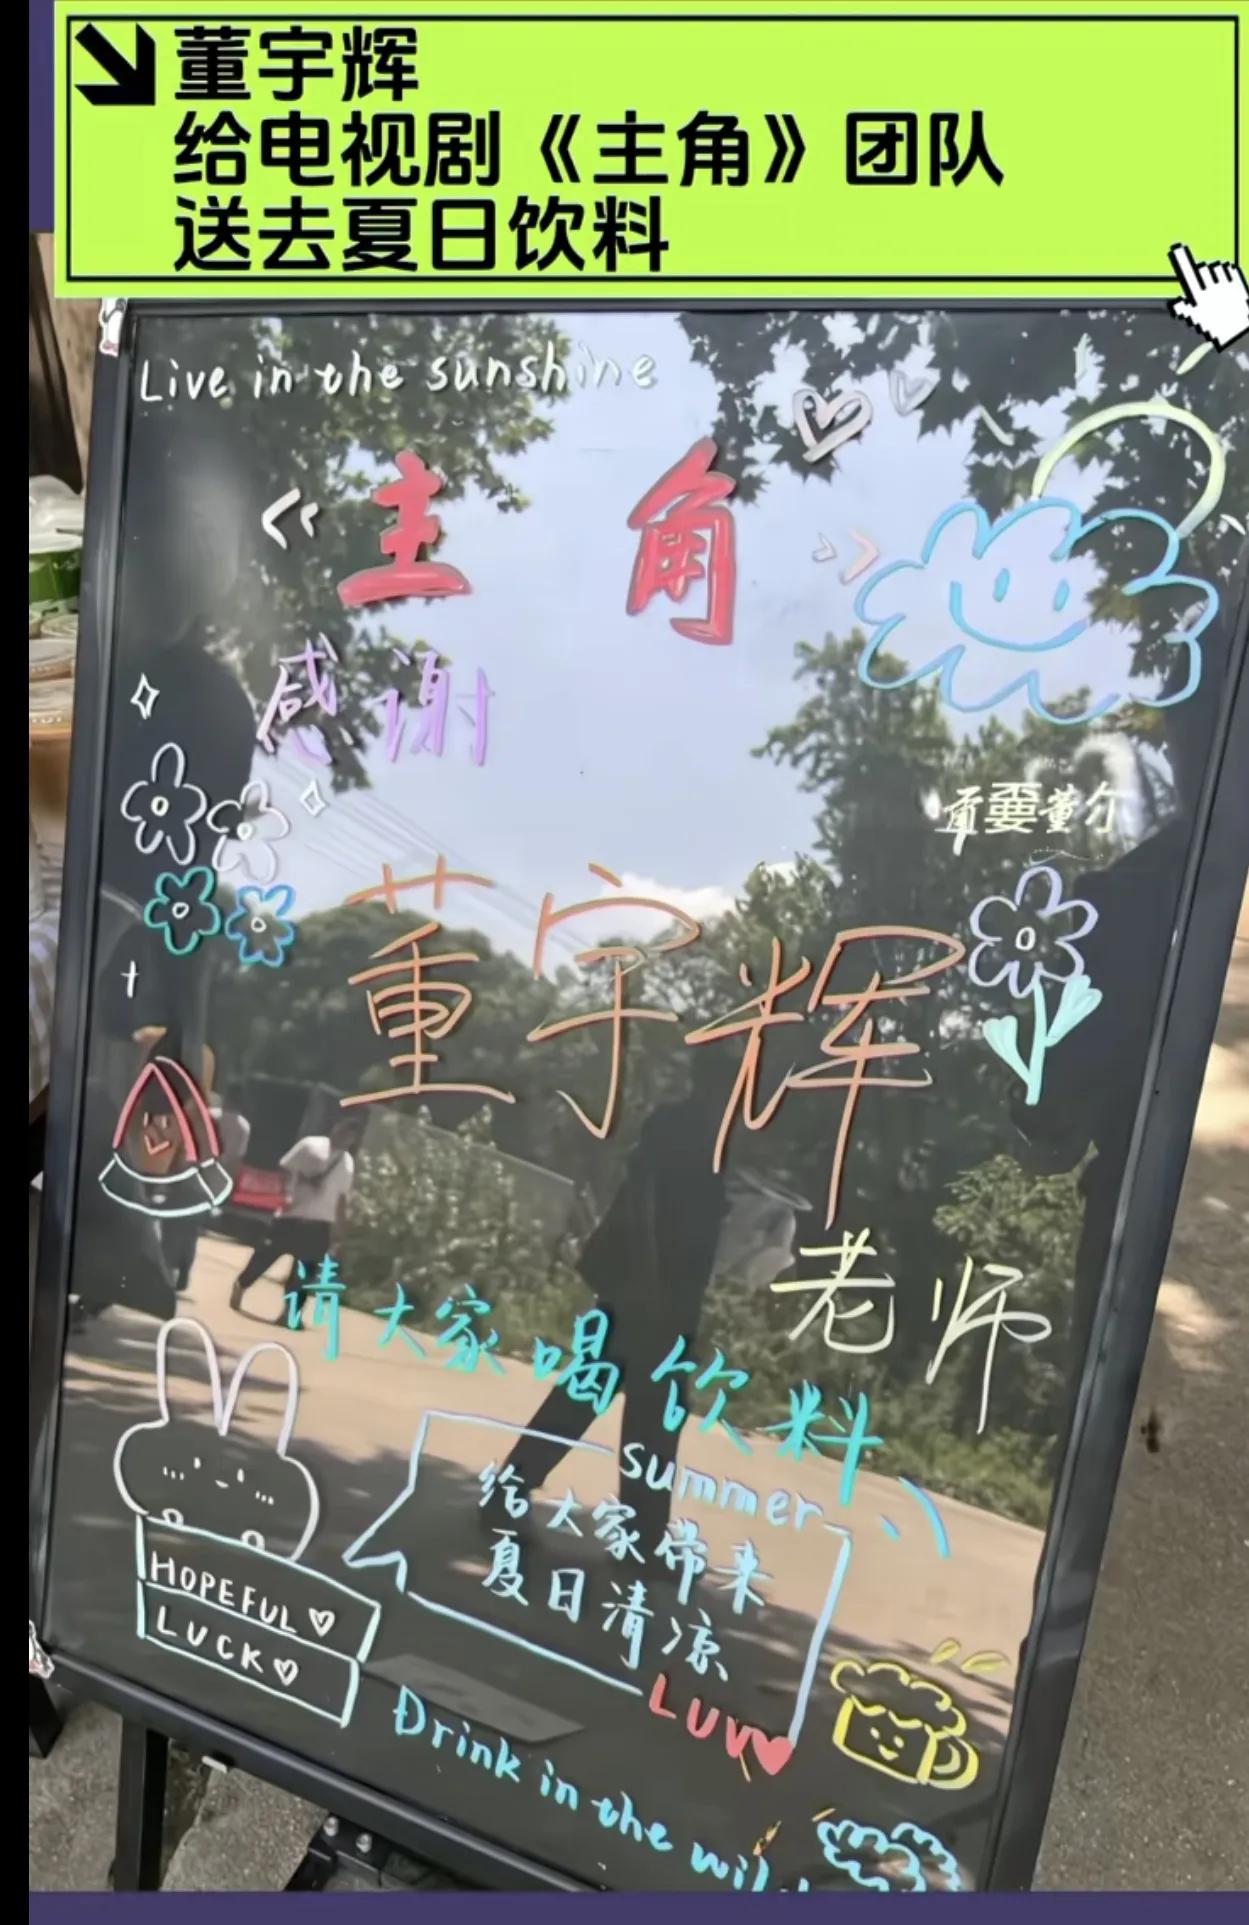 董宇辉
给电视剧《主角》团队
送去夏日饮料
Live in the sunshine
《主角》
感谢
董宇辉
老师
请大家喝饮料
summer
给大家带来
夏日清凉
LUV
HOPEFUL
LUCK
Drink in the